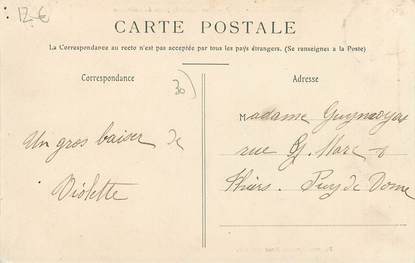 12€
CARTE POSTALE
La Correspondance au recto n'est pas acceptée par tous les pays étrangers. (Se renseigner à la Poste)
Correspondance
Adresse
30
Madame Guymoyas
Un gros baiser de
rue G. Marc
Violette
Thiers. Puy de Dome